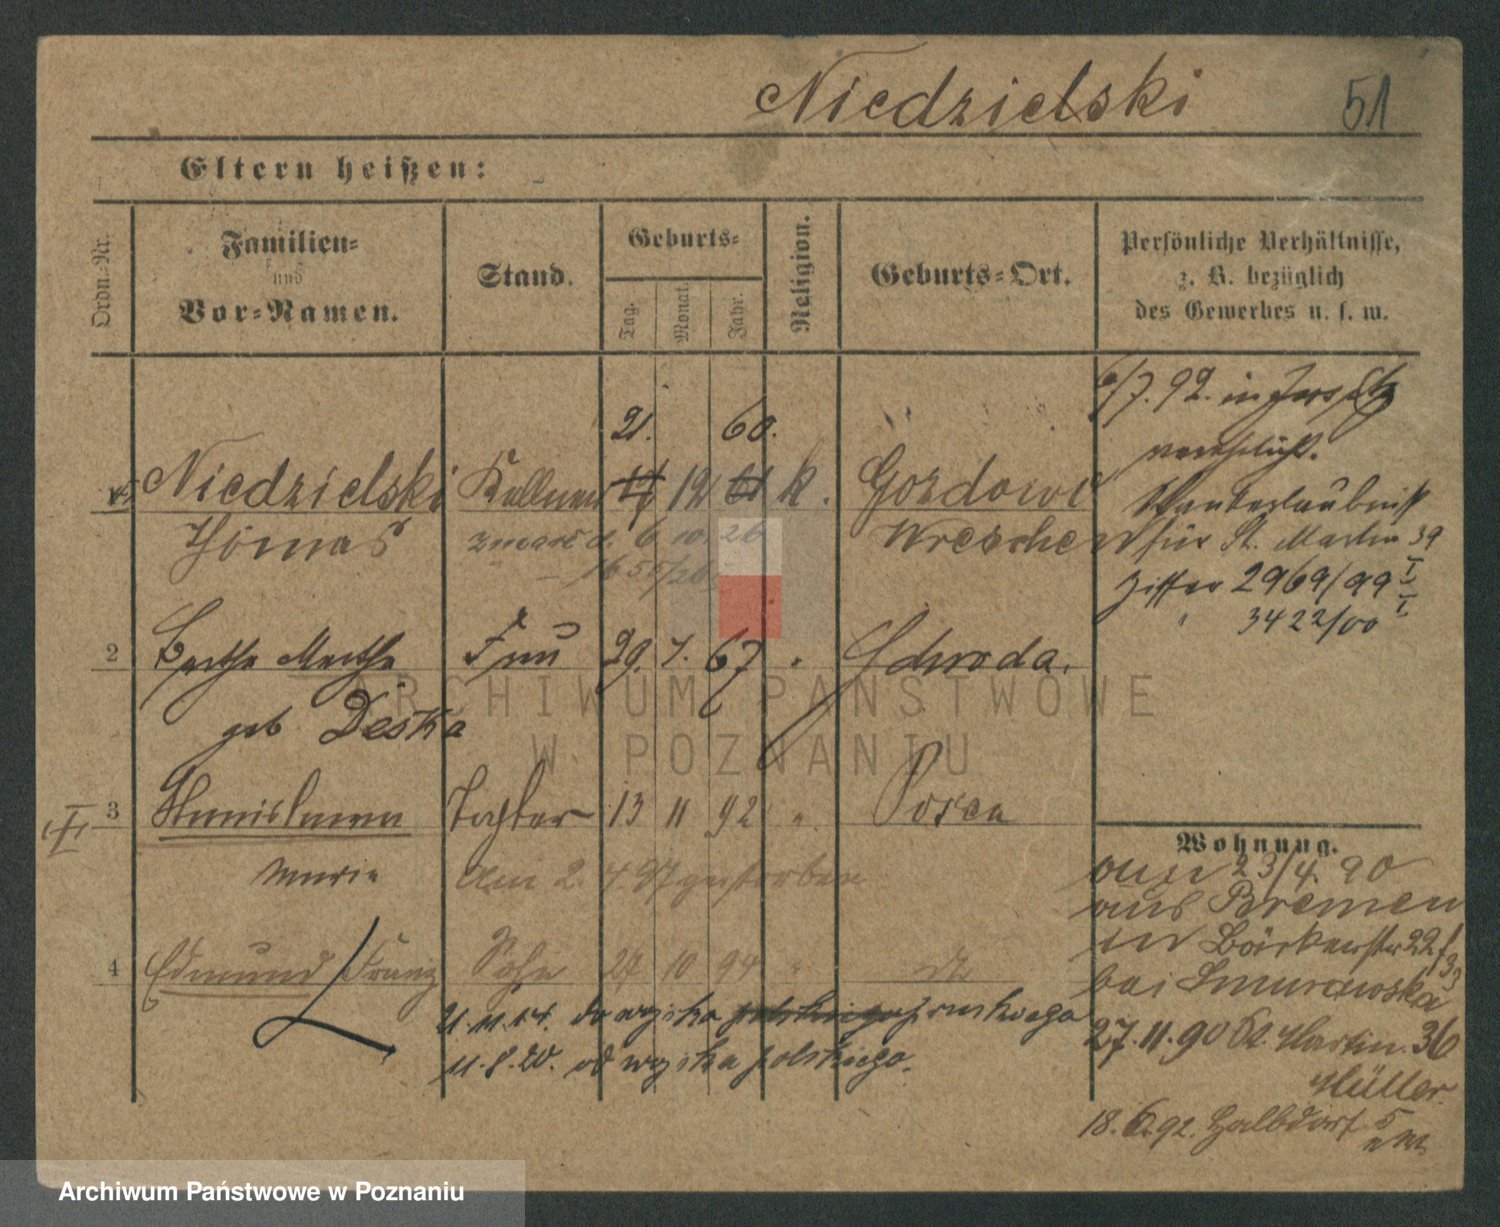 Niedzielski 51
Eltern heißen:
Ordn.-Nr.
Familien-
und
Vor-Namen.
Stand.
Geburts-
Tag.
Monat.
Jahr.
Religion.
Geburts-Ort.
Persönliche Verhältnisse,
z. B. bezüglich
des Gewerbes u. s. w.
6/7. 92. in
21. 60.
Niedzielski Kellner 12 61 k. Gozdowo
Thomas Wreschen
zmarł d. 6 10. 26
1655/26
für St. Martin 39
Ziffer 2969/99 I
" 3422/00 I
2 Martha Frau 29. 7. 67 "
geb Deska
3 Stanislawa Tochter 13 11 92 " Posen
Marie am 2. 4. 97 gestorben
4 Edmund Franz Sohn 27 10 94 " do
11.14. do wojska polskiego pruskiego
11.8.20. od wojska polskiego.
Wohnung.
23/4. 90
aus Bremen
in Bäckerstr 22
bei Smurawska
27.11.90 St. Martin. 36
Müller.
18.6.92. Halbdorf 5
ARCHIWUM PAŃSTWOWE
W POZNANIU
Archiwum Państwowe w Poznaniu